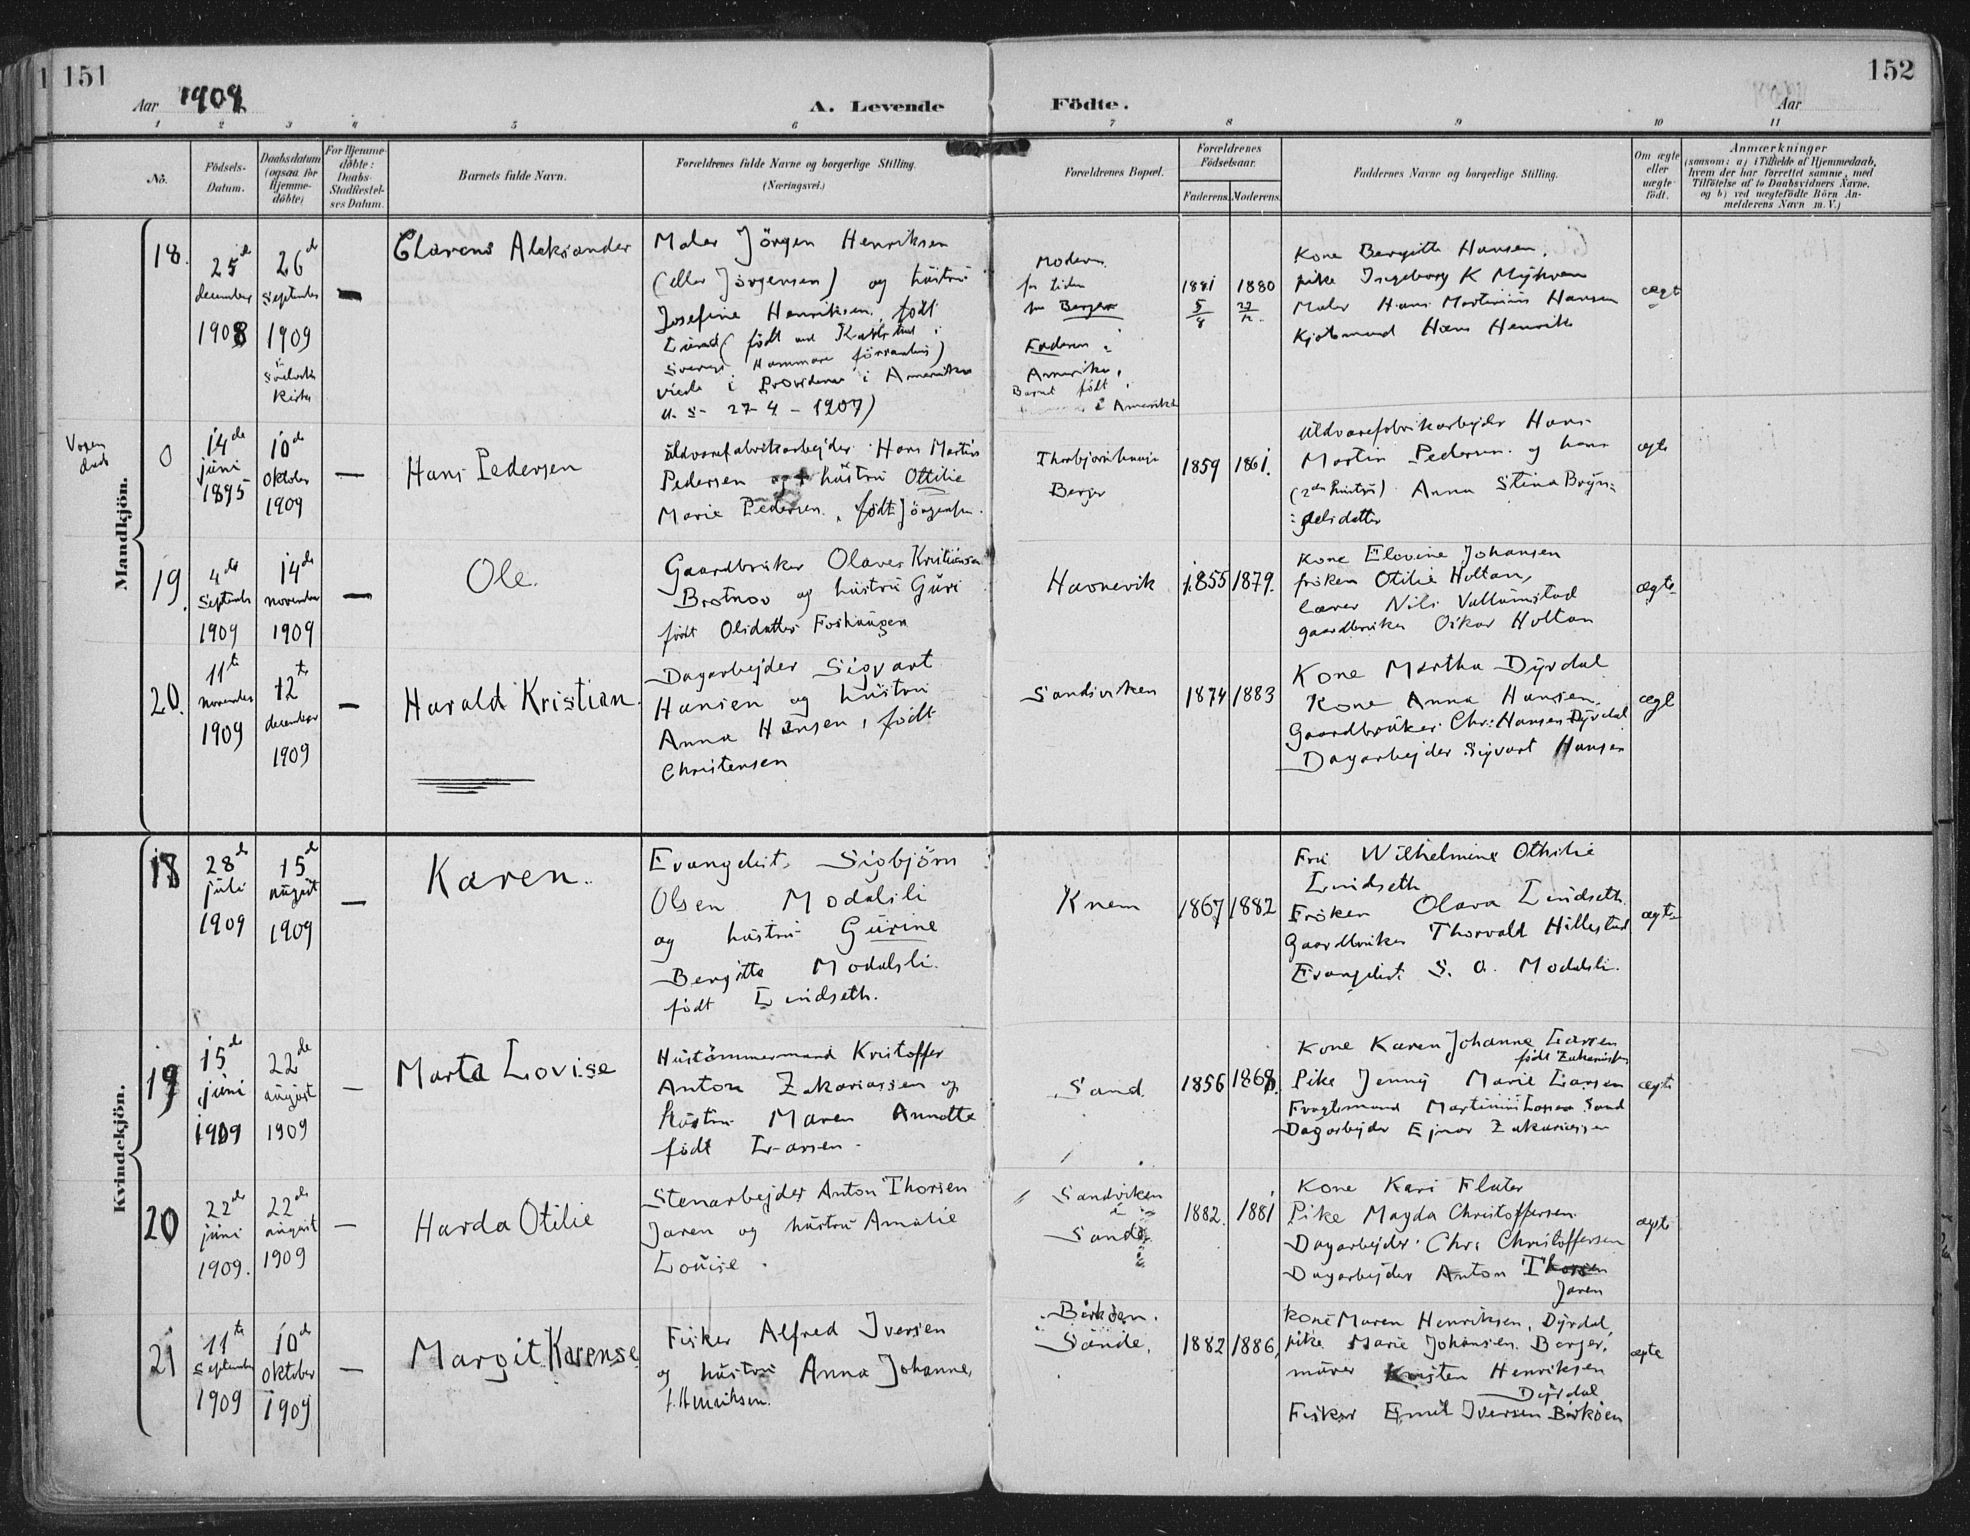 151
152
Aar 1909
A. Levende
Födte.
Aar
1 2 3 4 5 6 7 8 9 10 11
No.
Födsels-
Datum.
Daabsdatum
(ogsaa for
Hjemme-
döbte)
For Hjemme-
döbte:
Daabs-
Stadfæstel-
ses Datum.
Barnets fulde Navn.
Forældrenes fulde Navne og borgerlige Stilling.
(Næringsvei.)
Forældrenes Bopæl.
Forældrenes
Födselsaar.
Faderens.
Moderens.
Faddernes Navne og borgerlige Stilling.
Om ægte
eller
uægte
født.
Anmærkninger
(saasom: a) i Tilfælde af Hjemmedaab,
hvem der har forrettet samme, med
Tilföielse af to Daabsvidners Navne.
og b) ved uægtefödte Börn An-
melderens Navn m. V.)
Mandkjön.
18.
25de
december
1908
26de
September
1909
i
Svelvik
Kirke
—
Clarens Aleksander
Maler Jörgen Henriksen
(eller Jörgensen) og hustru
Josefine Henriksen, født
Lund (født ved Karlstad i
Sverige Hammarö församling)
viede i Providence i Amerika
U. S. 27-4-1907)
Modern
for tiden
Berger
Faderen i
Amerika,
Barnet født
i Amerika
1881
5/8
1880
Kone Bergitte Hansen,
pike Ingeborg K Myhren
Maler Hans Martinius Hansen
Kjöbmand Hans Henriks
ægte
Voxen
daab
0
14de
juni
1895
10de
Oktober
1909
—
Hans Pedersen
Uldvarefabrikarbejder Hans Martin
Pedersen og hustru Ottilie
Marie Pedersen, født Jörgensen.
Thorbjörnshaug
Berger
1859
1861.
Uldvarefabrikarbejder Hans
Martin Pedersen og hans
(2den hustru) Anna Stina Bryn-
gelsdatter
ægte
19.
4de
September
1909
14de
november
1909
—
Ole.
Gaardbruker Olaves Kristiansen
Brotnov og hustru Guri
født Olsdatter Foshaugen
Havnevik
1855
1879.
Kone Elovine Johansen
fröken Otilie Holtan,
Lærer Nils Vallumstad
gaardbruker Oskar Holtan
ægte
20.
11te
november
1909
12te
december
1909
—
Harald Kristian.
Dagarbejder Sigvart
Hansen og hustru
Anna Hansen, født
Christensen
Sandviken
1874
1883
Kone Martha Dyrdal
Kone Anna Hansen.
Gaardbruker Chr: Hansen Dyrdal
Dagarbejder Sigvart Hansen
ægte
Kvindekjön.
18
28de
juli
1909
15de
august
1909
—
Karen.
Evangelist Sigbjörn
Olsen Modalsli
og hustru Gurine
Bergitte Modalsli.
født Lindseth.
Knem
1867
1882
Fru Wilhelmine Othilie
Lindseth
Fröken Olava Lindseth.
Gaardbruker Thorvald Hillestad
Evangelist S. O. Modalsli.
ægte
19
15de
juni
1909
22de
august
1909
—
Marta Lovise
Hustömmermand Kristoffer
Anton Zakariassen og
hustru Maren Annette
født Larsen.
Sand.
1856
1868.
Kone Karen Johanne Larsen
født Zakariassen
Pike Jenny Marie Larsen
Fragtemand Martinius Larsen Sand
Dagarbejder Ejnar Zakariassen
ægte
20
22de
juni
1909.
22de
august
1909
—
Harda Otilie
Stenarbejder Anton Thorsen
Jaren og hustru Amalie
Louise.
Sandviken
i
Sande
1882.
1881
Kone Kari Flater
Pike Magda Christoffersen.
Dagarbejder Chr: Christoffersen
Dagarbejder Anton Thorsen
Jaren
ægte
21
11te
September
1909
10de
Oktober
1909
—
Margit Karense
Fisker Alfred Iversen
og hustru Anna Johanne,
f. Henriksen.
Birköen.
Sande.
1882
1886,
Kone Maren Henriksen, Dyrdal,
pike Marie Johansen. Berger,
murer Kristen Henriksen
Dyrdal
Fisker Emil Iversen Birköen
ægte